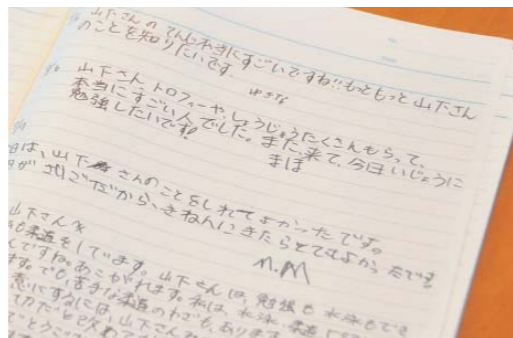 山下さんの てんじ本当にすごいですね!!もっともっと山下さん
のことを知りたいです。 ゆきな
山下さん トロフィーや、しょうじょうたくさんもらって、
本当にすごい人でした。また、来て、今日いじょうに
勉強したいです! まほ
日は、山下さんのことをしれてよかったです。
日が だから、きねんにきたらとてもよかったです。
M.M
山下さんへ
も柔道をしています。山下さんは、勉強も水泳もでき
んですね。あこがれます。私は、水泳、柔道
ます。でも、苦手な柔道のわざも、あります。
意にするには、山下さん